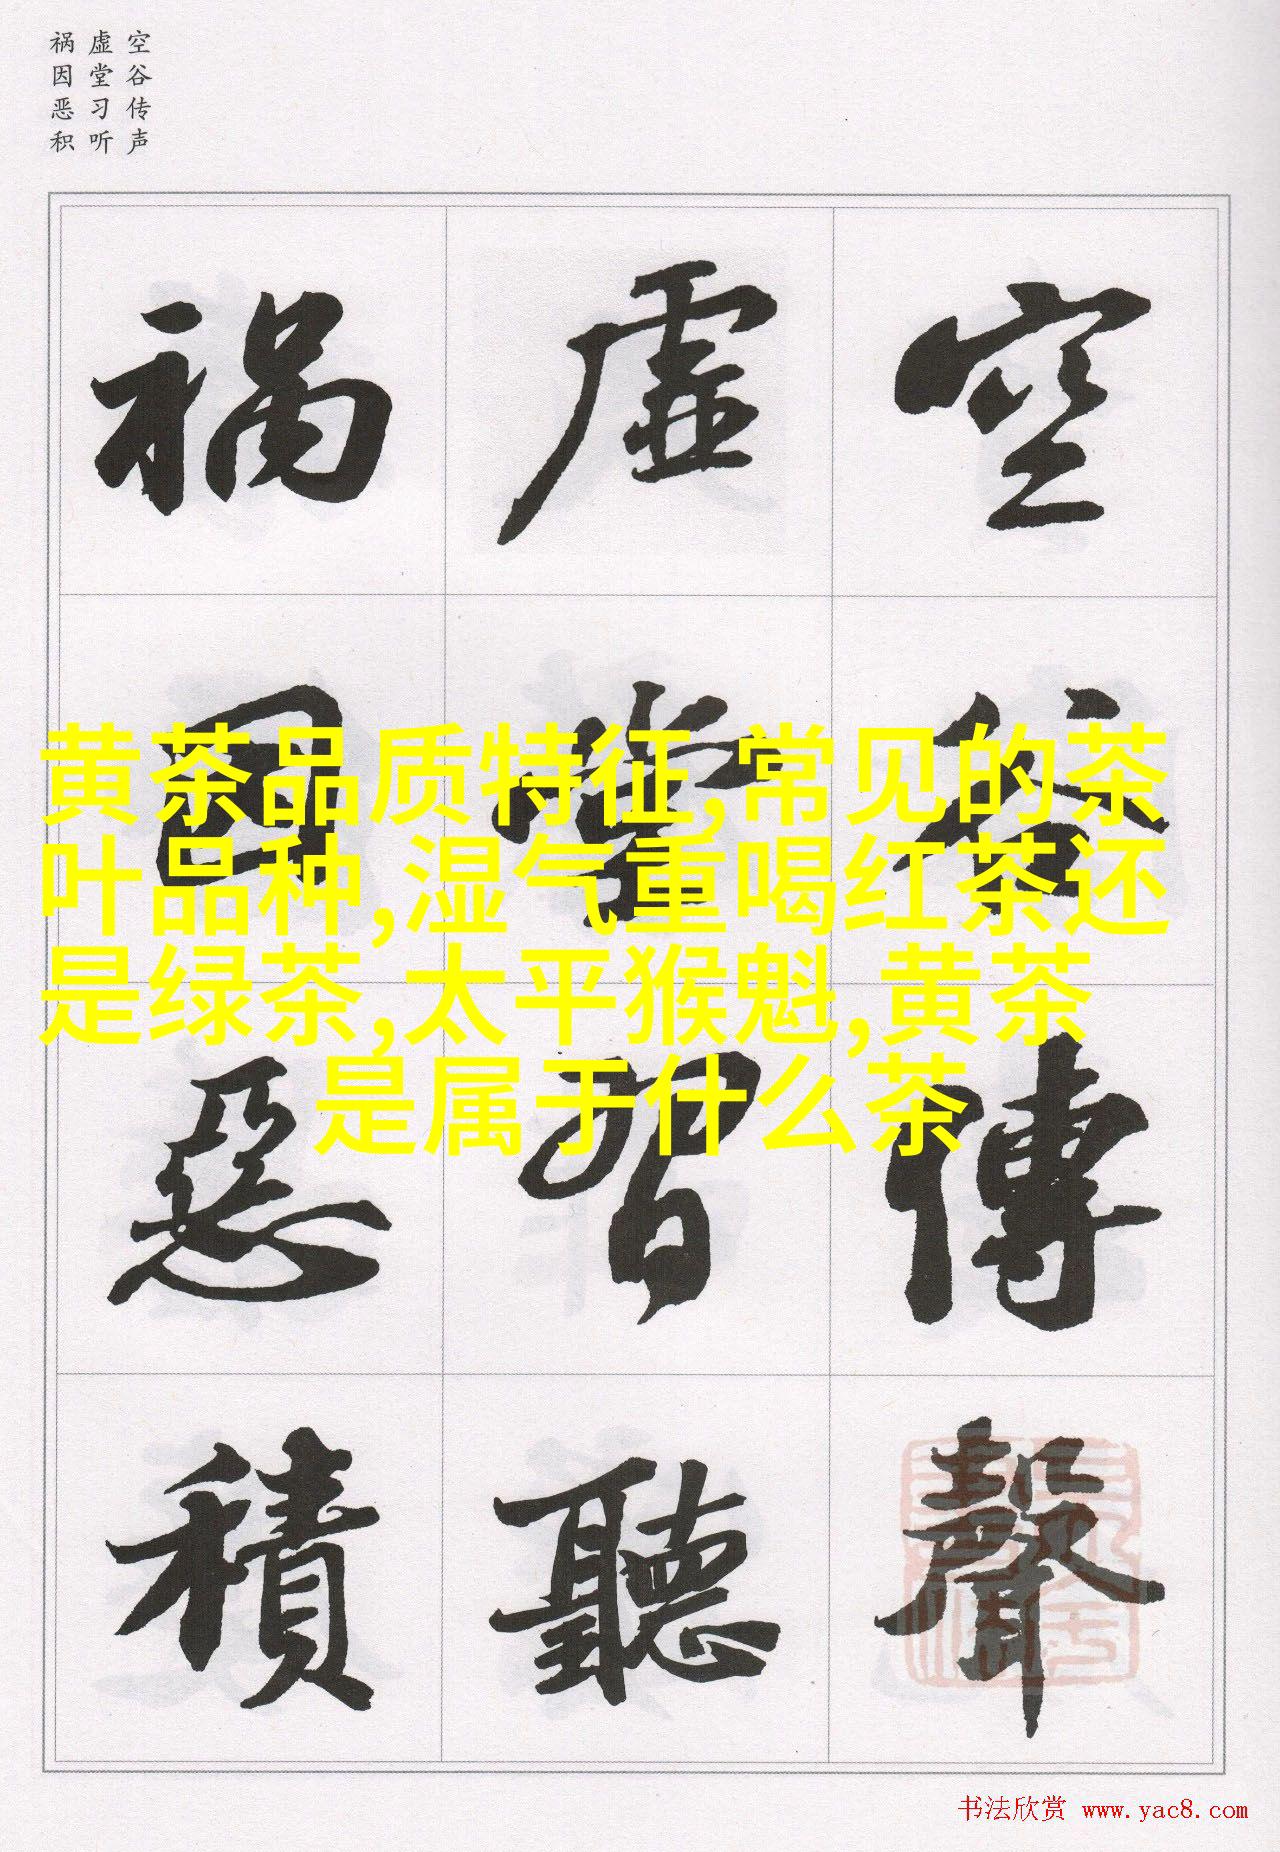 空谷传声
虚堂习听
祸因恶积
空谷傳聲
虚堂習聽
禍因惡積
黄茶品质特征,常见的茶
叶品种,湿气重喝红茶还
是绿茶,太平猴魁,黄茶
是属于什么茶
书法欣赏 www.yac8.com